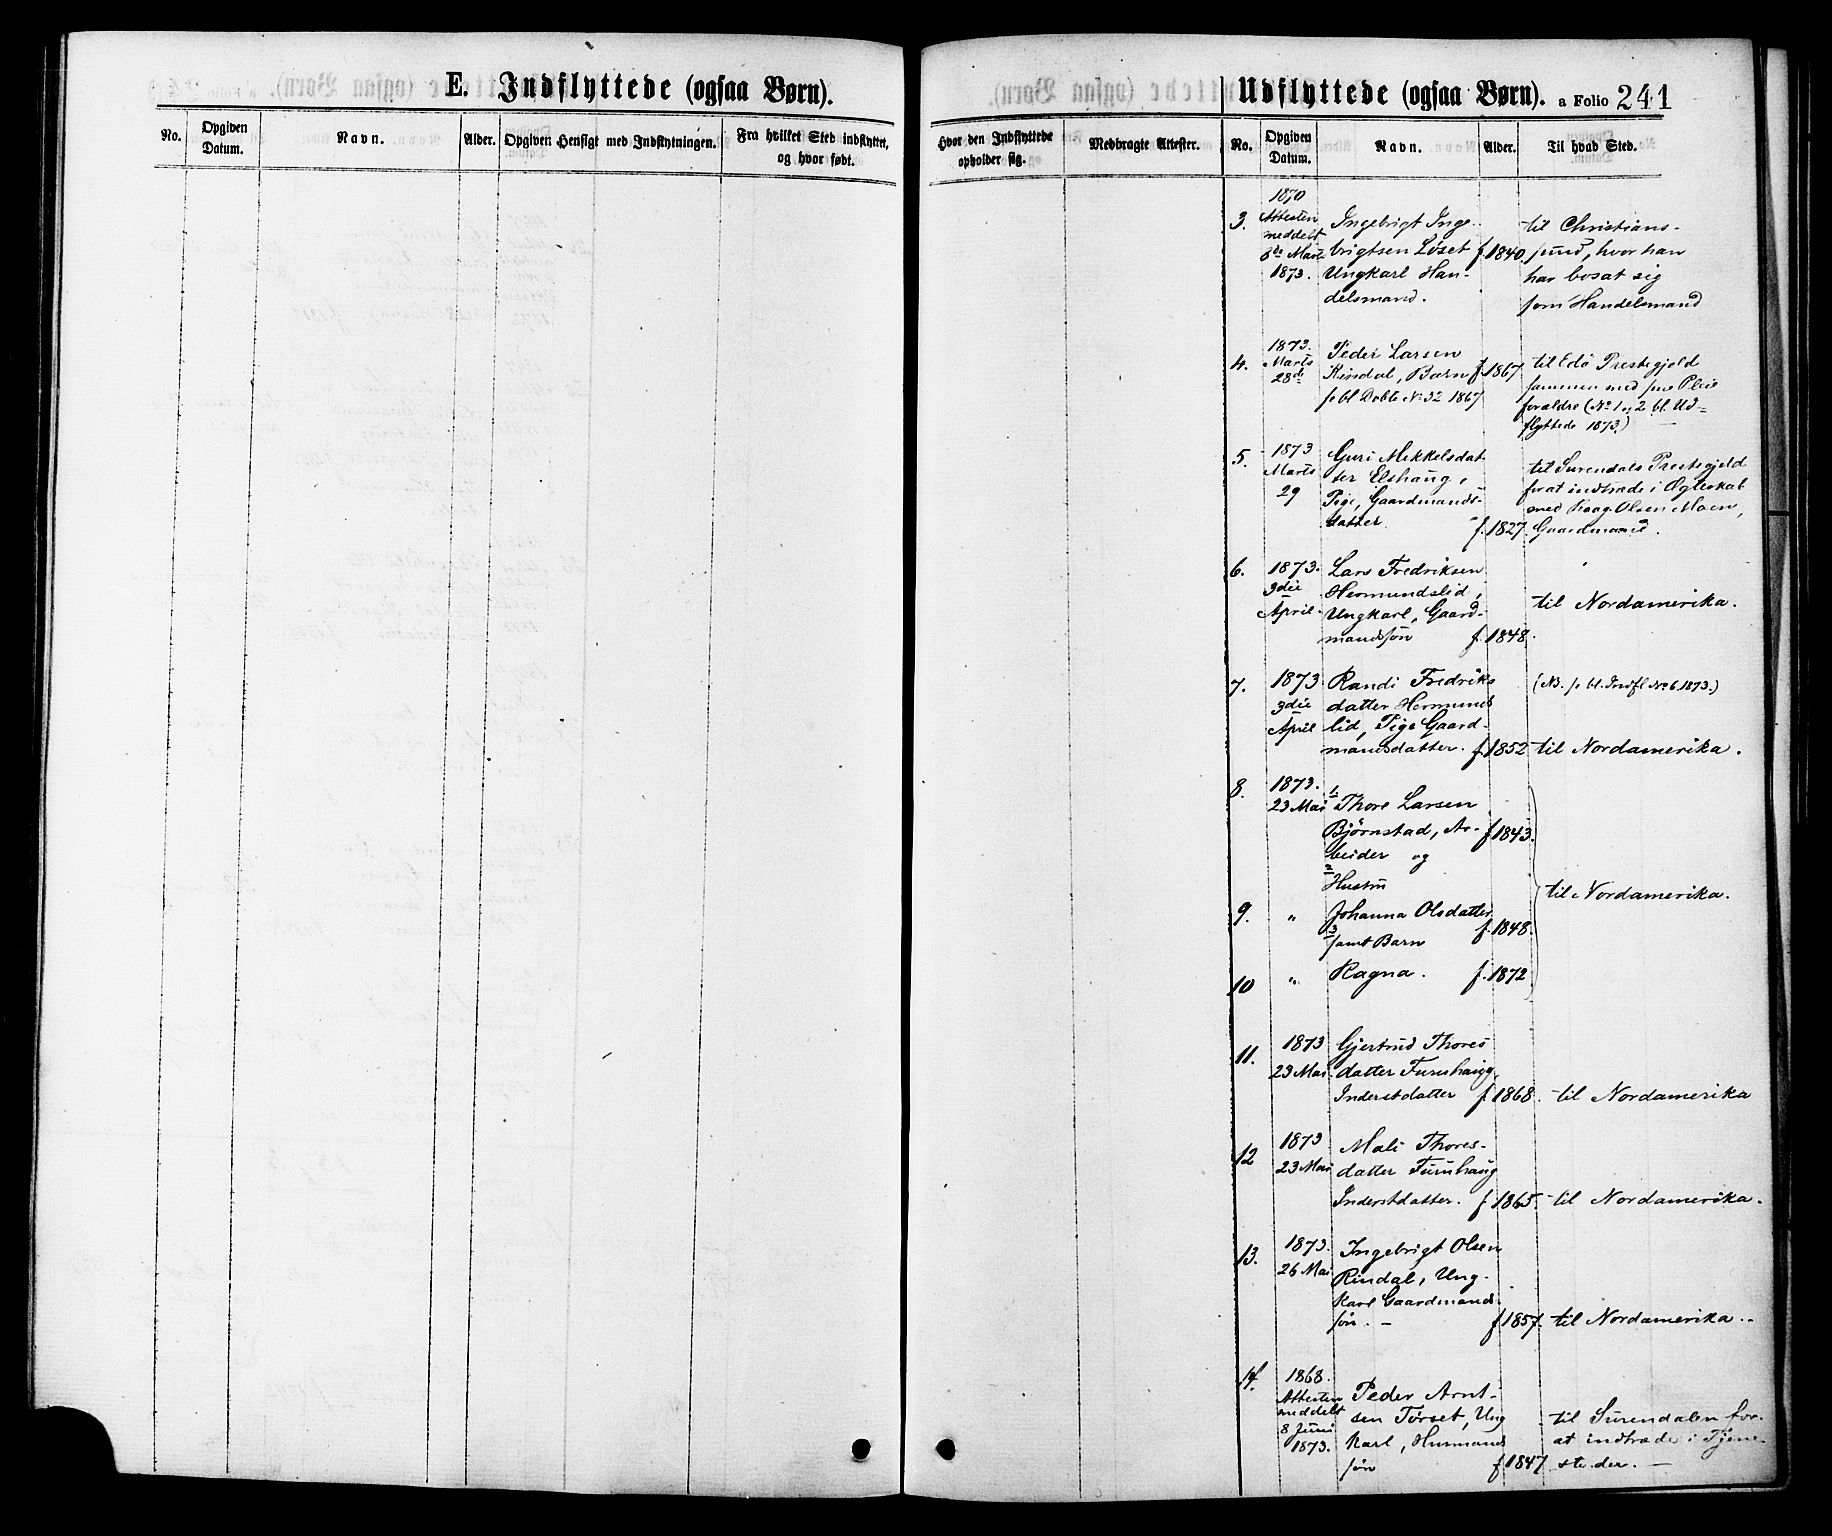 E. Indflyttede (ogsaa Børn).
No. Opgiven Datum. Navn. Alder. Opgiven Hensigt med Indflytningen. Fra hvilket Sted indflyttet, og hvor født.
Udflyttede (ogsaa Børn). a Folio 241
Hvor den Indflyttede opholder sig. Medbragte Attester. No. Opgiven Datum. Navn. Alder. Til hvad Sted.
3. 1870 Attesten meddelt 8de Mart 1873.
Ingebrigt Inge-
brigtsen Løset f. 1840.
Ungkarl Han-
delsmand.
til Christians-
sund, hvor han
har bosat sig
som Handelsmand
4. 1873. Marts 28de
Peder Larsen
Rindal, Barn f. 1867.
s. bl Døbte No 32 1867
til Edö Prestegjeld
sammen med sine Pleie
forældre (No 1 og 2 bl. Ud-
flyttede 1873.)
5. 1873 Marts 29
Guri Mikkelsdat-
ter Elshaug,
Pige, Gaardmands-
datter. f. 1827.
til Surendals Prestegjeld
for at indtræde i Ægteskab
med Olsen Moen,
Gaardmand.
6. 1873. 3die April.
Lars Fredriksen
Hermundslid,
Ungkarl, Gaard-
mandssön f. 1848.
til Nordamerika.
7. 1873 3die April
Randi Fredriks
datter Hermunds
lid, Pige Gaard-
mandsdatter. f. 1852
(NB. s. bl. Indfl No 6 1873.)
til Nordamerika.
8. 1873. 23 Mai
1. Thore Larsen
Bjørnstad, Ar- f. 1843.
beider og
2 Hustru
9. " Johanna Olsdatter
3 samt Barn f. 1848.
10 " Ragna. f. 1872
til Nordamerika.
11. 1873 23 Mai.
Gjertrud Thores
datter Furuhaug,
Inderstdatter f. 1868.
til Nordamerika
12 1873 23 Mai
Mali Thores-
datter Furuhaug
Inderstdatter. f. 1865.
til Nordamerika.
13. 1873. 26 Mai
Ingebrigt Olsen
Rindal, Ung-
karl Gaardmands
sön. - f. 1857.
til Nordamerika.
14. 1868. Attesten meddelt 8 Juni 1873.
Peder Arnt-
sen Tørset, Ung
karl, Husmands
sön f. 1847.
til Surendalen for
at indtræde i Tjene-
ste der.